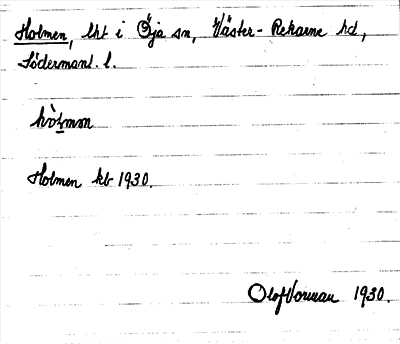 Holmen, lht i Öja sn, Väster-Rekarne hd,
Södermanl. l.
hòlmm
Holmen kb 1930.
Olof Vorman 1930.